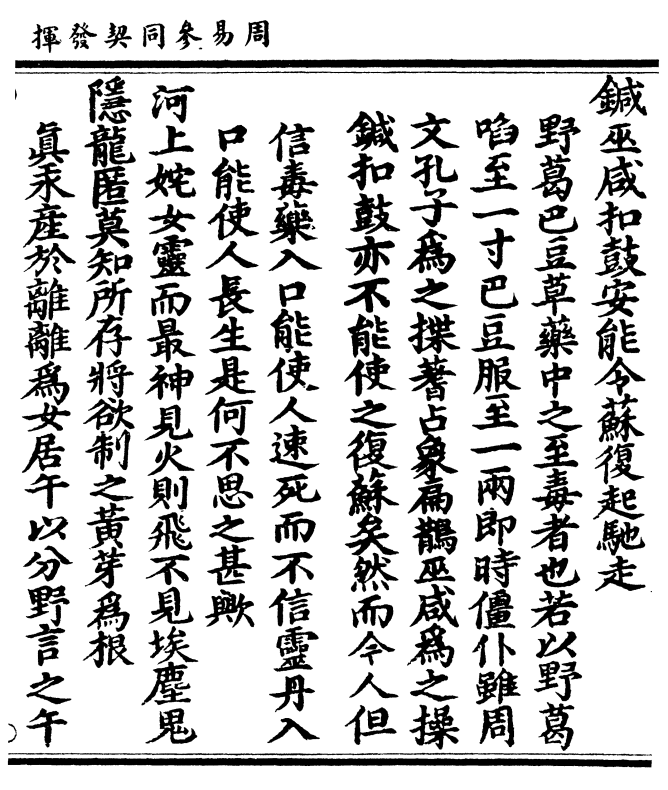 周易參同契發揮
鍼巫咸扣鼓安能令蘇復起馳走
野葛巴豆草藥中之至毒者也若以野葛
啗至一寸巴豆服至一兩即時僵仆雖周
文孔子爲之揲蓍占象扁鵲巫咸爲之操
鍼扣鼓亦不能使之復蘇矣然而今人但
信毒藥入口能使人速死而不信靈丹入
口能使人長生是何不思之甚歟
河上姹女靈而最神見火則飛不見埃塵鬼
隱龍匿莫知所存將欲制之黃芽爲根
眞汞産於離離爲女居午以分野言之午